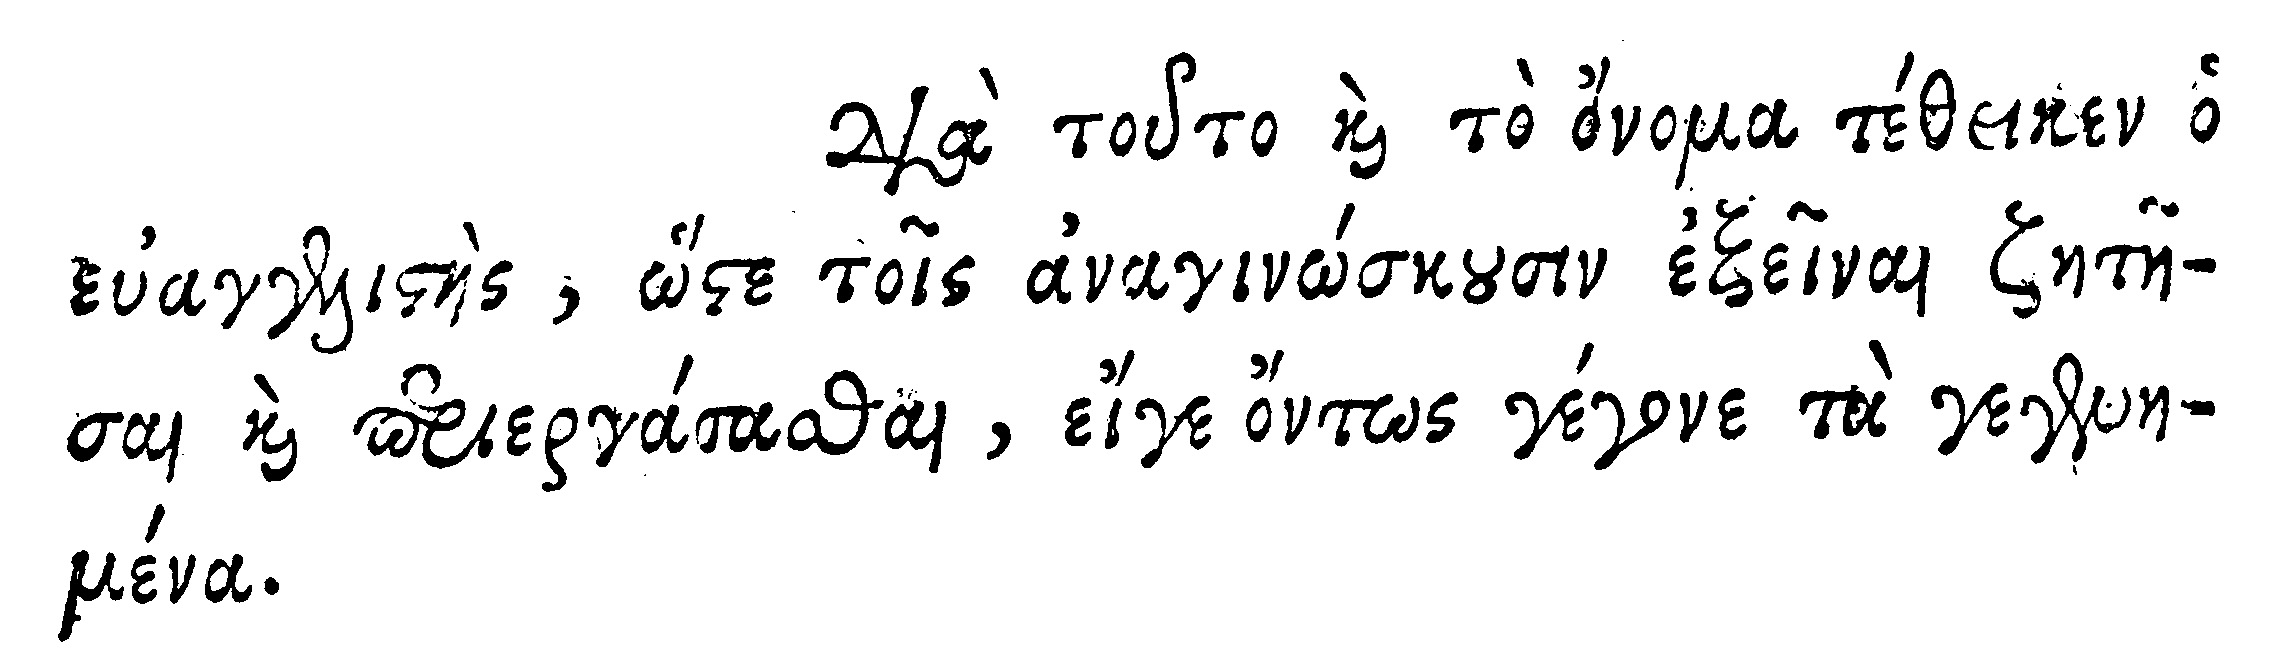 Διὰ τοῦτο καὶ τὸ ὄνομα τέθεικεν ὁ
εὐαγγελιστὴς, ὥστε τοῖς ἀναγινώσκουσιν ἐξεῖναι ζητῆ-
σαι καὶ περιεργάσασθαι, εἴγε ὄντως γέγονε τὰ γεγενη-
μένα.